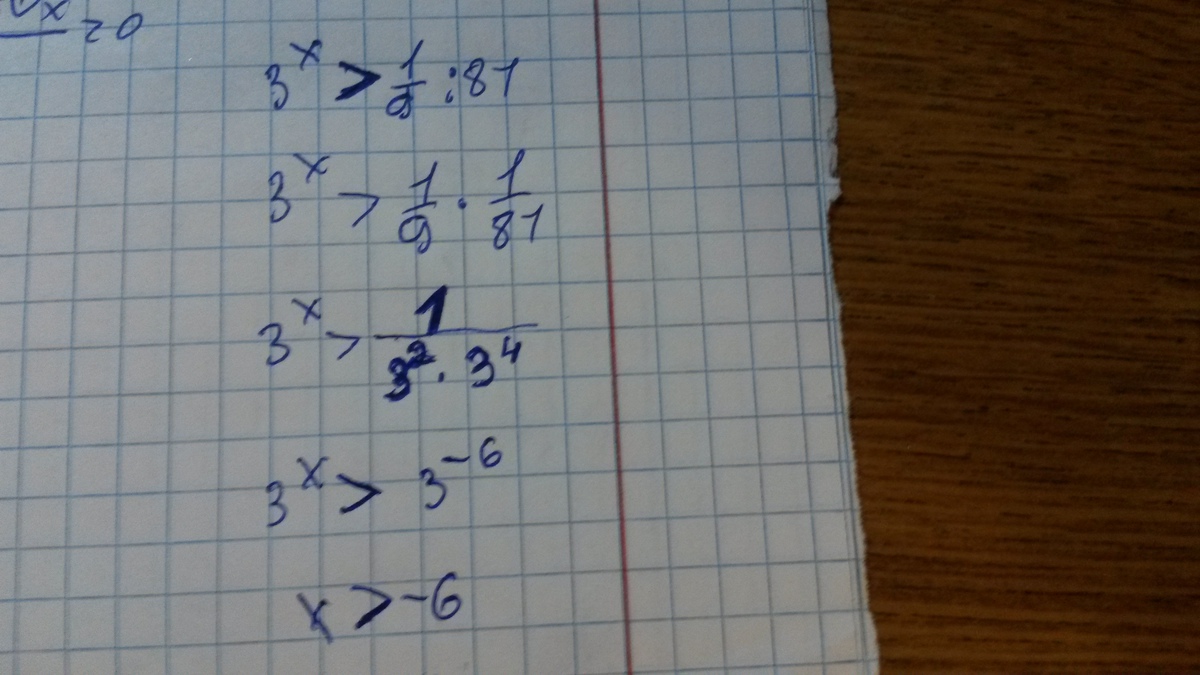 x
≥0
3^x > 1/9 : 81
3^x > 1/9 · 1/81
3^x > 1/(3^2 · 3^4)
3^x > 3^-6
x > -6